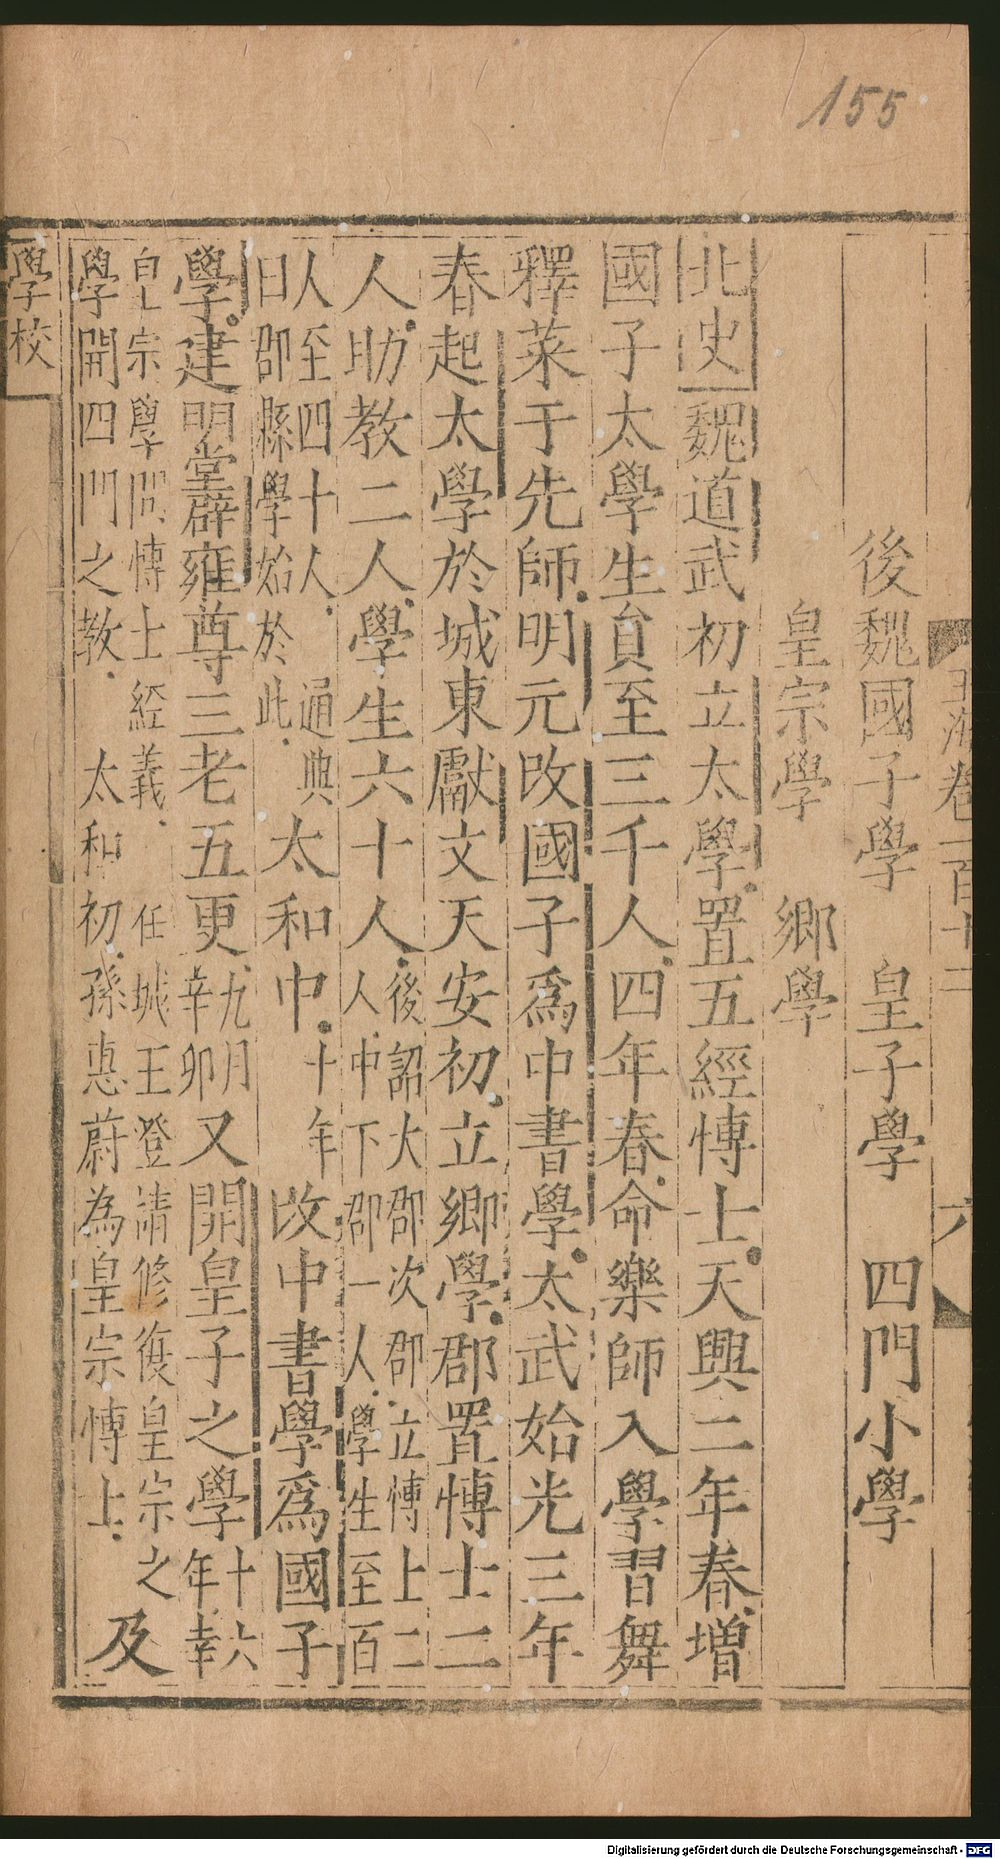 155
玉海卷一百十二
六
後魏國子學　皇子學　四門小學
皇宗學　鄉學
北史魏道武初立太學置五經博士天興二年春增
國子太學生員至三千人四年春命樂師入學習舞
釋菜于先師明元改國子為中書學太武始光三年
春起太學於城東獻文天安初立鄉學郡置博士二
人助教二人學生六十人
後詔大郡次郡立博士二
人中下郡一人學生至百
人至四十人　通典
曰郡縣學始於此
太和中
十年
改中書學爲國子
學建明堂辟雍尊三老五更
九月
辛卯
又開皇子之學
十六
年幸
皇宗學問博士經義　任城王澄請修復皇宗之
學開四門之教　太和初孫惠蔚為皇宗博士
及
學校
Digitalisierung gefördert durch die Deutsche Forschungsgemeinschaft - DFG